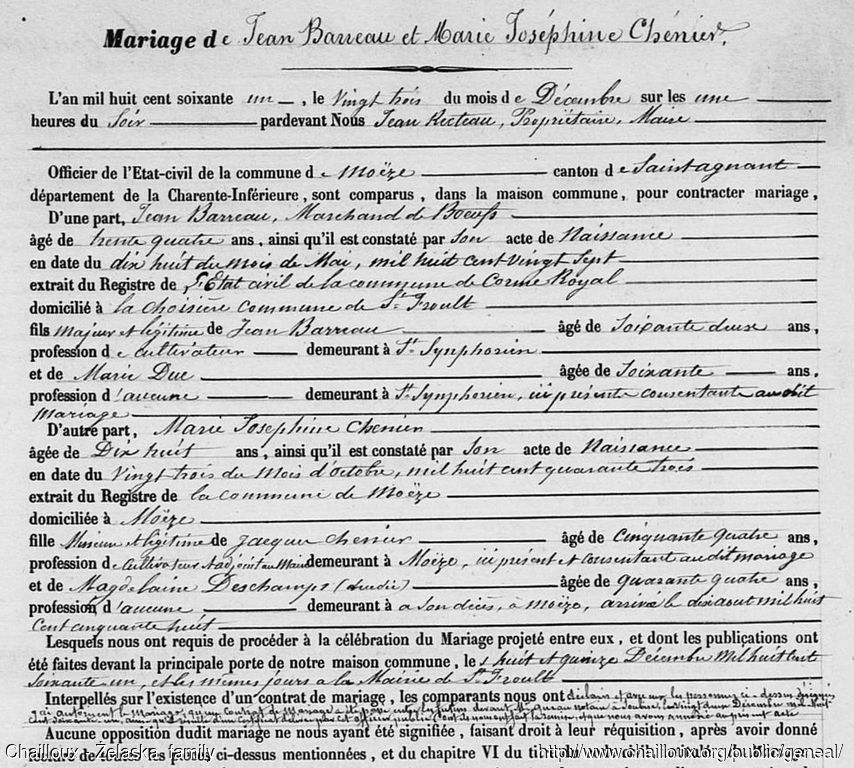 Mariage de Jean Barreau et Marie Joséphine Chénier.
L'an mil huit cent soixante un, le Vingt trois du mois de Décembre sur les une
heures du Soir pardevant Nous Jean Recteau, Propriétaire, Maire
Officier de l'Etat-civil de la commune de Moëze canton de Saint agnant
département de la Charente-Inférieure, sont comparus, dans la maison commune, pour contracter mariage,
D'une part, Jean Barreau, Marchand de Boeufs
âgé de trente quatre ans, ainsi qu'il est constaté par son acte de Naissance
en date du dix huit du mois de Mai, mil huit cent vingt sept
extrait du Registre de l'Etat civil de la commune de Corme Royal
domicilié à la Choisière Commune de St Froult
fils majeur et légitime de Jean Barreau âgé de Soixante deux ans,
profession de cultivateur demeurant à St Symphorien
et de Marie Duc âgée de Soixante ans,
profession d'aucune demeurant à St Symphorien, ici présente consentante au dit
mariage
D'autre part, Marie Josephine Chenier
âgée de Dix huit ans, ainsi qu'il est constaté par Son acte de Naissance
en date du Vingt trois du Mois d'octobre, mil huit cent quarante trois
extrait du Registre de la commune de Moëze
domiciliée à Moëze
fille Mineure et légitime de Jacques Chenier âgé de Cinquante quatre ans,
profession de cultivateur et adjoint au Maire demeurant à Moëze, ici présent et consentant au dit mariage
et de Magdelaine Deschamps âgée de quarante quatre ans,
profession d'aucune, demeurant à a son décès, à Moëze, arrivé le dix aout mil huit
Cent cinquante huit
Lesquels nous ont requis de procéder à la célébration du Mariage projeté entre eux, et dont les publications ont
été faites devant la principale porte de notre maison commune, les huit et quinze Décembre Mil huit cent
Soixante un, et les mêmes jours à la Mairie de St Froult
Interpellés sur l'existence d'un contrat de mariage, les comparants nous ont déclaré et par les personnes ci-dessus
qui autorisent le Mariage, qu'un contrat de Mariage a été passé entre les futurs devant notaire
Aucune opposition dudit mariage ne nous ayant été signifiée, faisant droit à leur réquisition, après avoir donné
lecture de toutes les pièces ci-dessus mentionnées, et du chapitre VI du titre du
Chailloux - Żelaska family
http://www.chailloux.org/public/geneal/